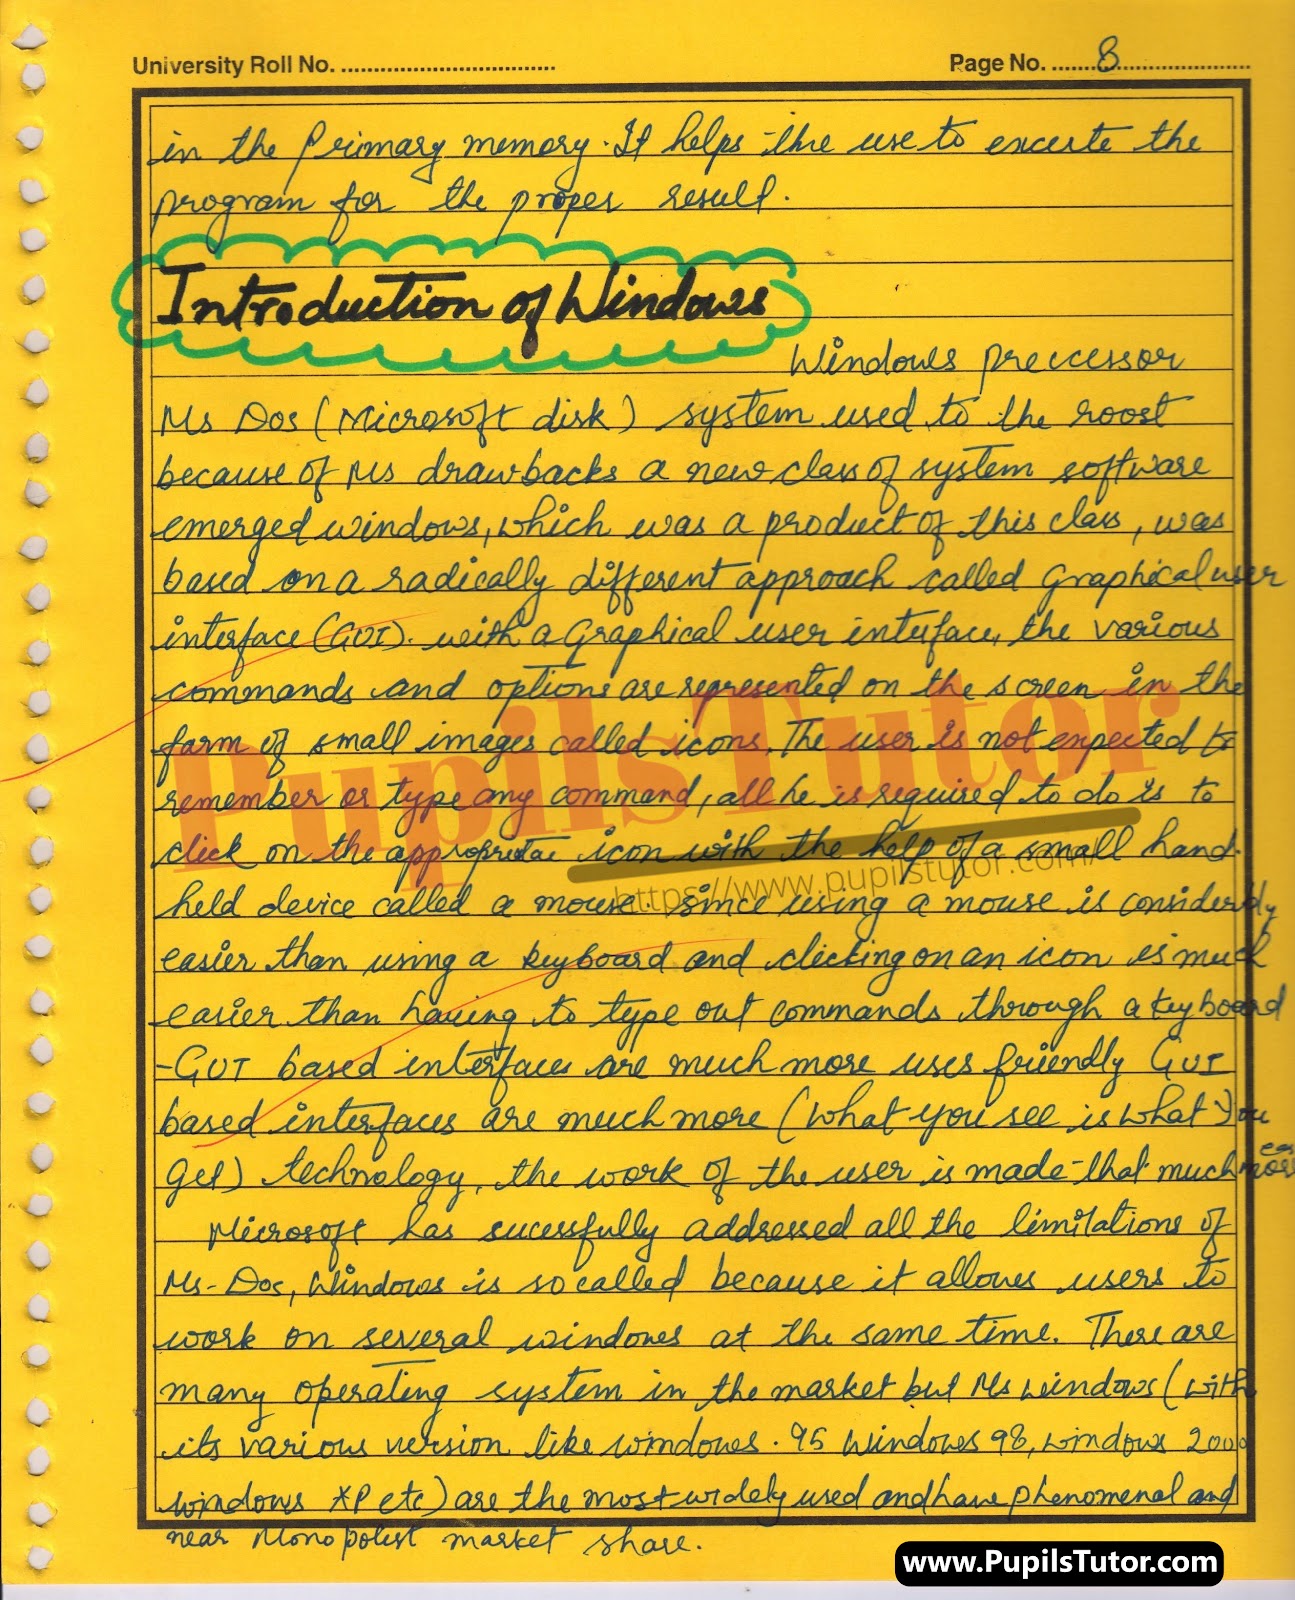 University Roll No. ................................. Page No. .......8....................
in the primary memory. It helps the use to excute the
program for the proper result.
Introduction of Windows
Windows preccessor
Ms Dos (Microsoft disk) system used to the roost
because of Ms drawbacks a new class of system software
emerged windows, which was a product of this class, was
based on a radically different approach called Graphical user
interface (GUI). with a Graphical user interface, the various
commands and options are represented on the screen in the
farm of small images called icons. The user is not expected to
remember or type any command, all he is required to do is to
click on the appropriate icon with the help of a small hand-
held device called a mouse. since using a mouse is considerdly
easier than using a keyboard and clicking on an icon is much
easier than having to type out commands through a keyboard
-GUI based interfaces are much more uses friendly GUI
based interfaces are much more (what you see is what you
get) technology, the work of the user is made that much more
Microsoft has sucessfully addressed all the limitations of
Ms-Dos, Windows is so called because it allows users to
work on several windows at the same time. There are
many operating system in the market but Ms windows (with
its various version like windows. 95 windows 98, windows 2000
windows XP etc) are the most widely used and have phenomenal and
near Monopolist market share.
PupilsTutor
https://www.pupilstutor.com/
www.PupilsTutor.com